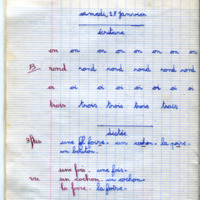 samedi 28 janvier
écriture
on on on on on on on
B. rond rond rond rond rond rond
oi oi oi oi oi oi oi
trois trois trois trois trois
dictée
une foire. un cochon. la poire.
un bouton.
une fois. une fois.
vu un cochon. un cochon.
la foire. la foire.